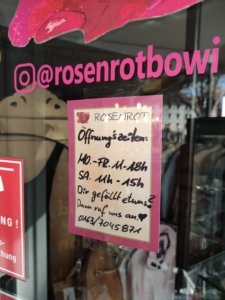 @rosenrotbowi
ROSENROT
Öffnungszeiten:
MO.-FR. 11-18h
SA. 11h-15h
Dir gefällt etwas?
Dann ruf uns an♥
NG!